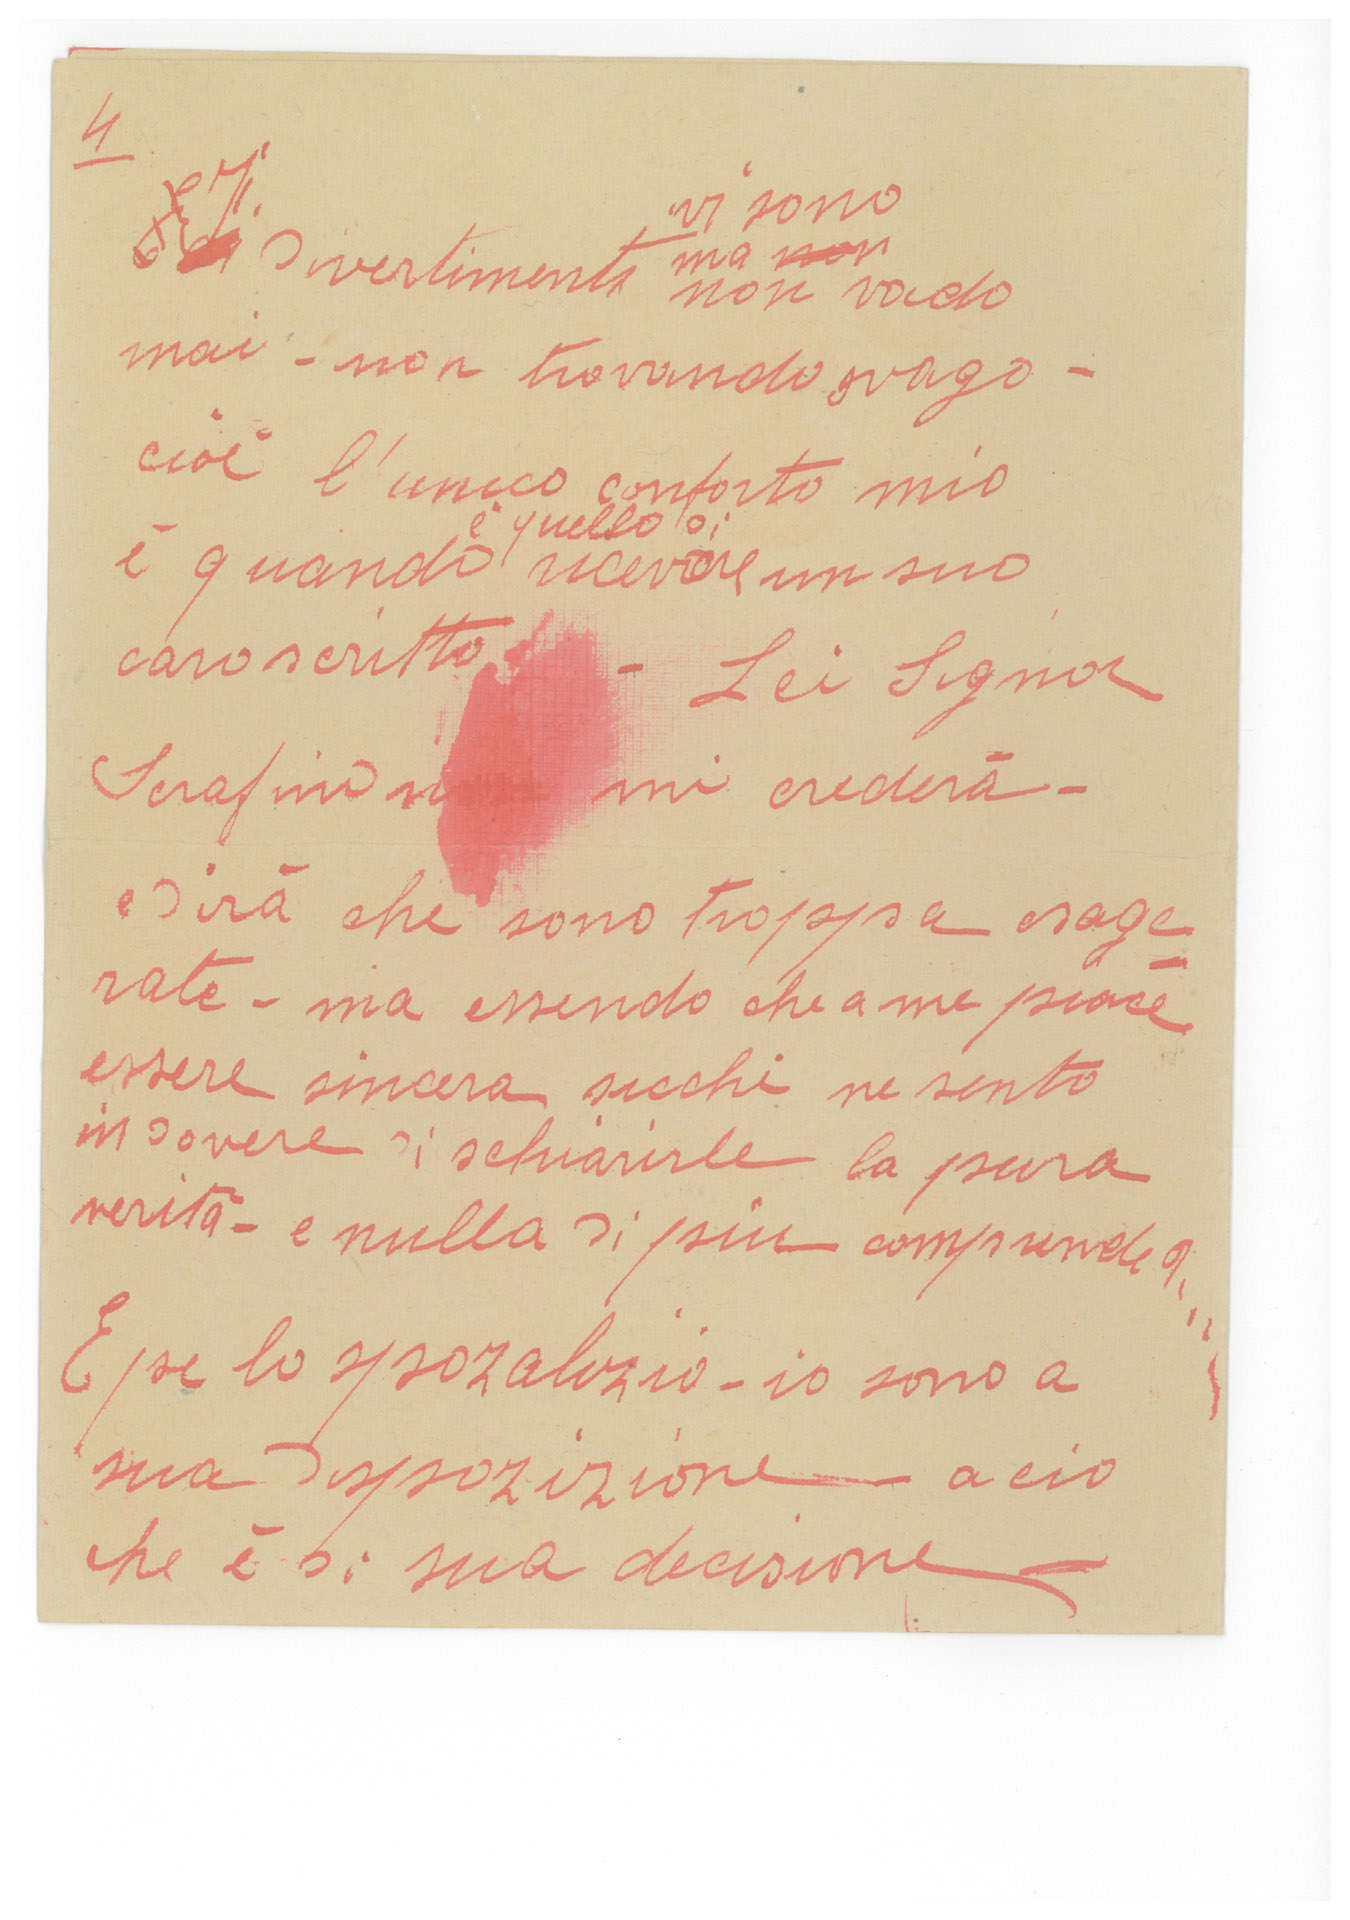 4
vi sono
Divertimenti ma non
non vado
mai - non trovando svago -
cioè l'unico conforto mio
e quello di
è quando ricevere un suo
caro scritto - Lei Signor
Serafino non mi crederà -
e Dirà che sono troppa esage
rate - ma essendo che a me piace
essere sincera sicchi ne sento
in dovere di schiarirle la pura
verità - e nulla di più comprende
E pe lo spozalizio - io sono a
sua Dispozizione a cio
che è di sua decisione